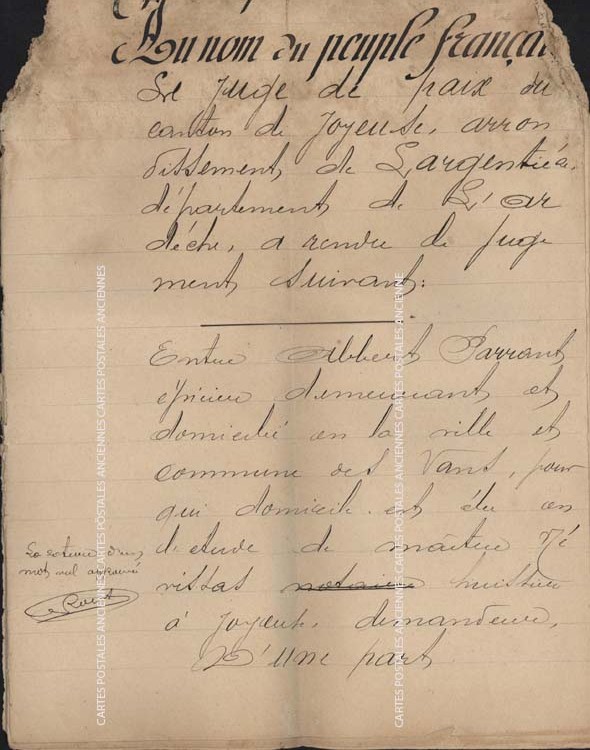 Au nom du peuple frança
Le juge de paix du
canton de Joyeuse, arron
dissement de Largentière,
département de L'Ar
dèche, a rendu le juge
ment suivant:
Entre Albert Parrant
épicier demeurant et
domicilié en la ville et
commune des Vans, pour
qui domicile est élu en
l'etude de maitre Né
vissas notaire huissier
à Joyeuse, demandeur,
D'une part
La rature d'un
mot nul approuvé
CARTES POSTALES ANCIENNES CARTES POSTALES ANCIENNES CARTES POSTALES ANCIENNES
CARTES POSTALES ANCIENNES CARTES POSTALES ANCIENNES CARTES POSTALES ANCIENNES